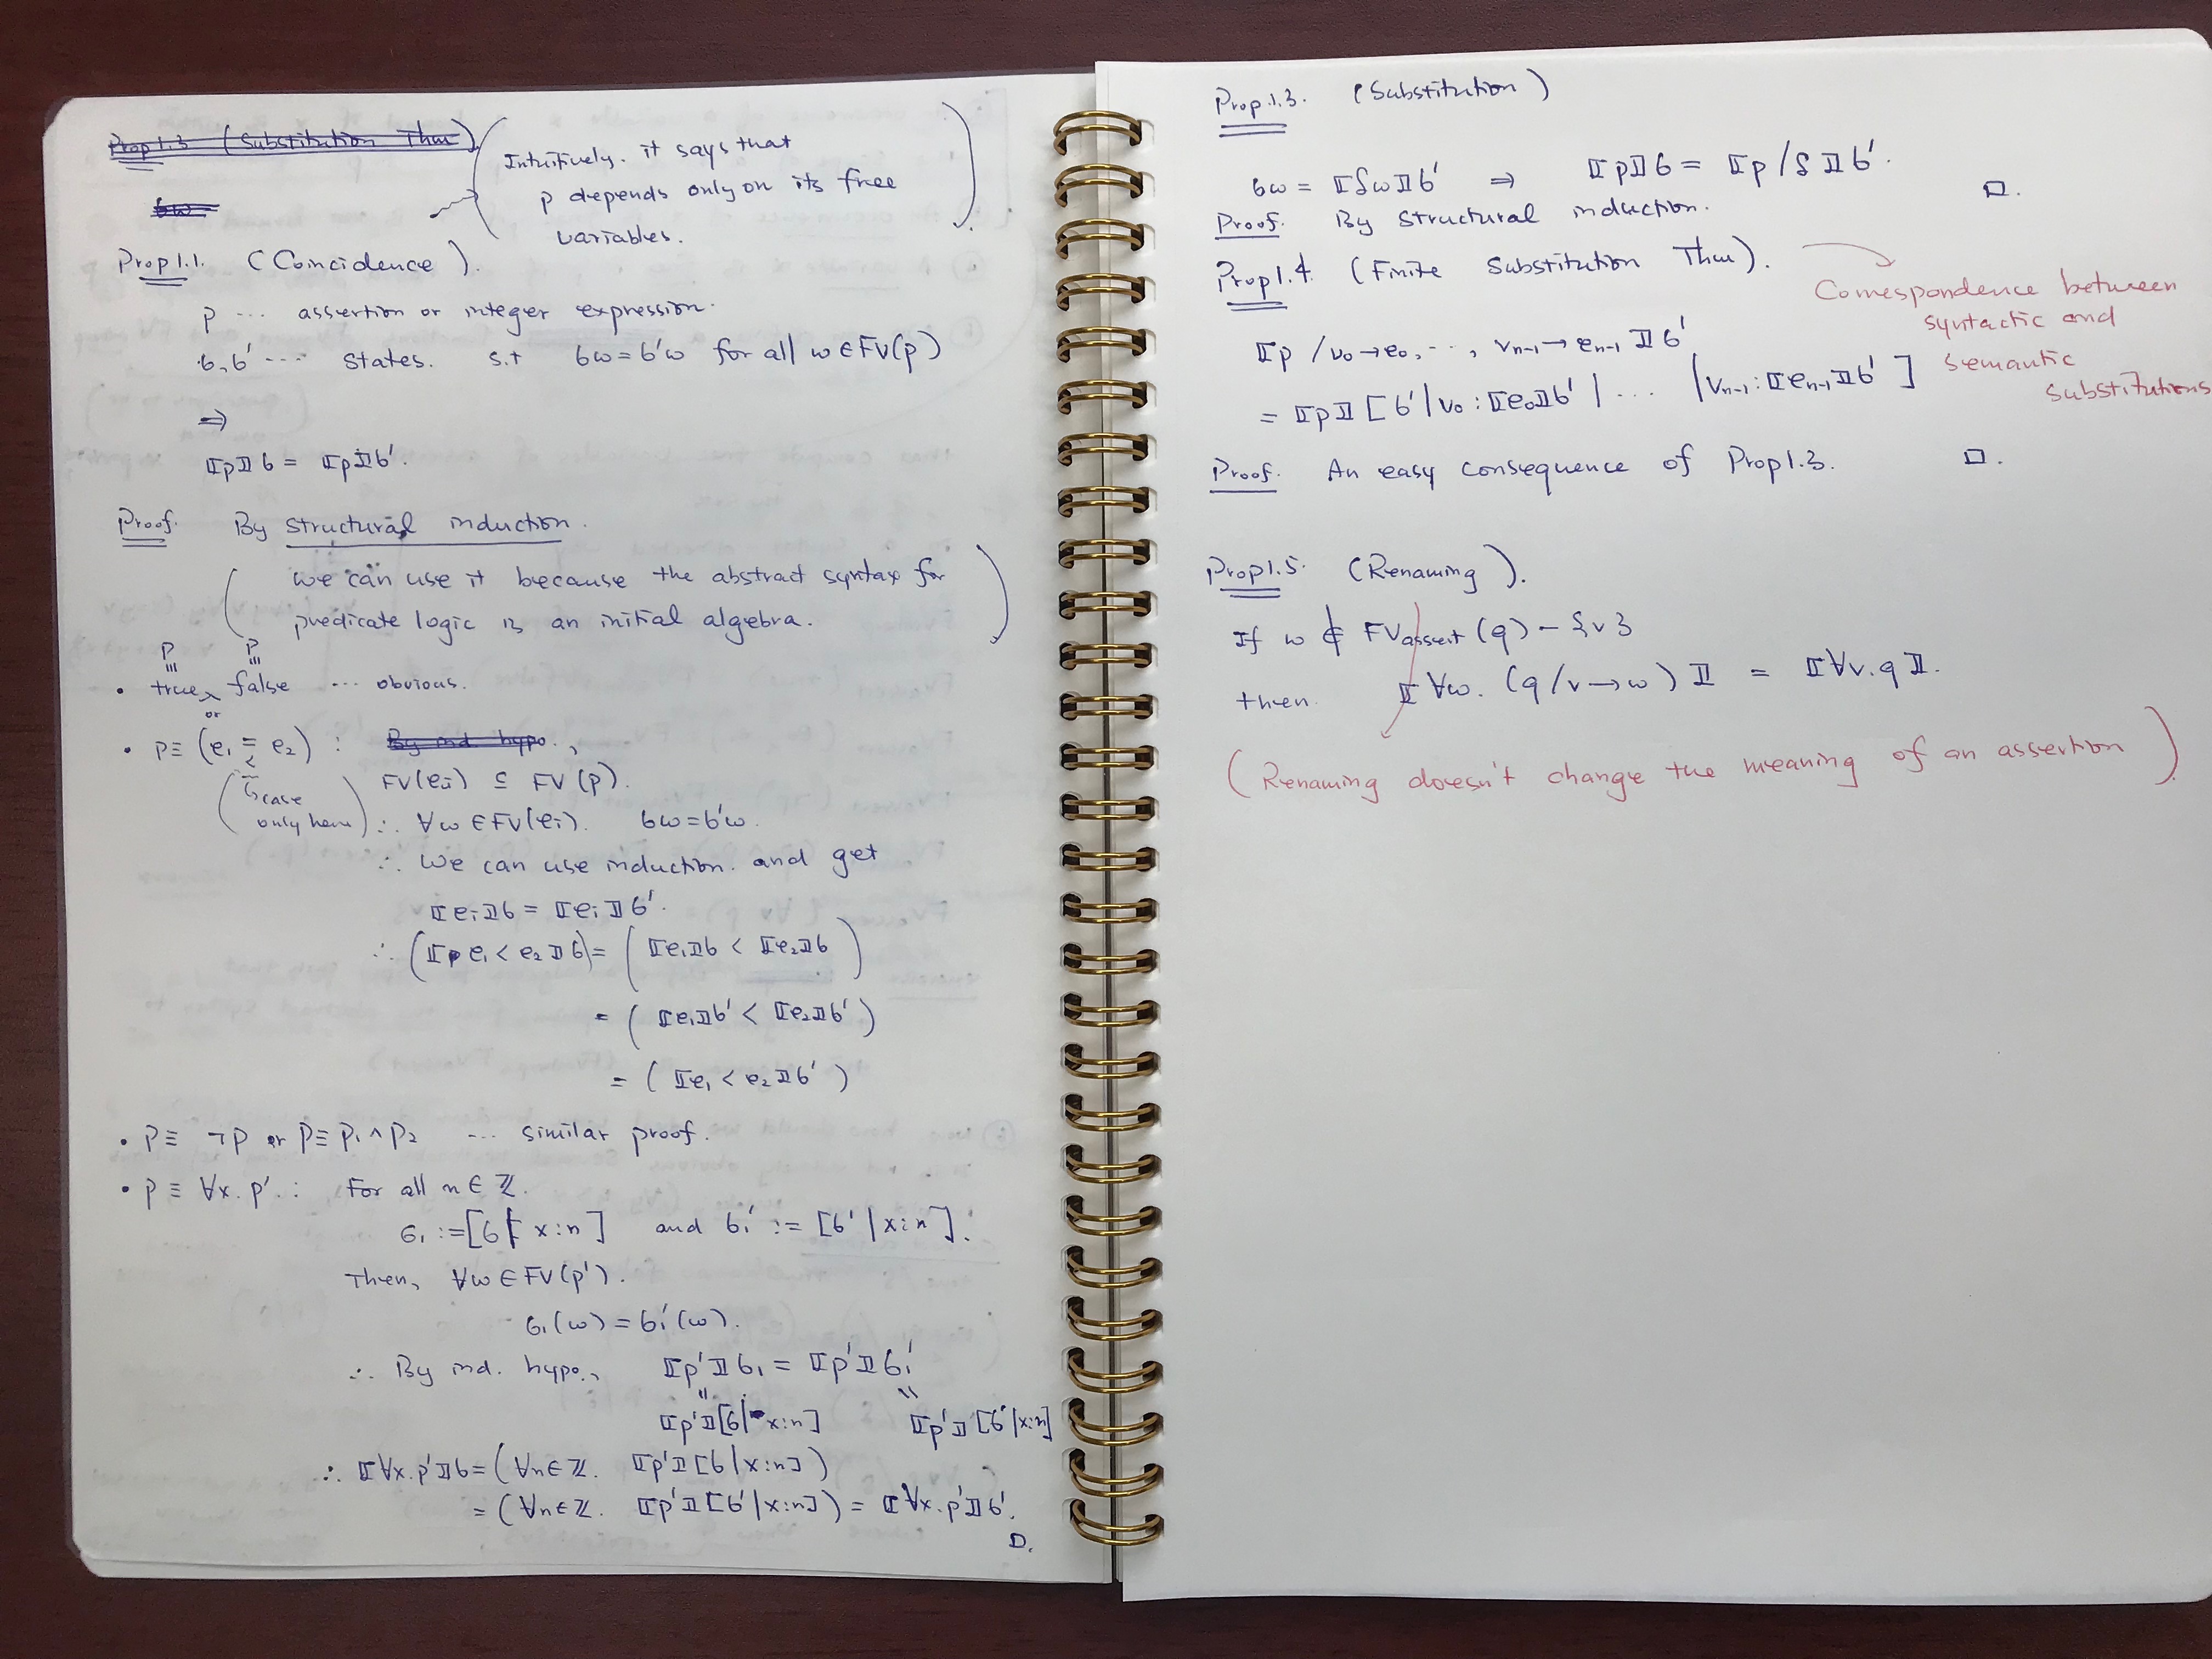 Prop 1.3 (Substitution Thm)
σw
( Intuitively. it says that
p depends only on its free
variables. )
Prop 1.1. (Coincidence).
p ... assertion or integer expression.
σ, σ' .... states. s.t σw = σ'w for all w ∈ FV(p)
⇒
⟦p⟧σ = ⟦p⟧σ'.
Proof. By structural induction.
( we can use it because the abstract syntax for
predicate logic is an initial algebra. )
P P
≡ ≡
• true, false ... obvious.
or
• p ≡ (e₁ = e₂) : By ind. hypo.,
<
FV(eᵢ) ⊆ FV(p).
( case
only here )
∴ ∀w ∈ FV(eᵢ). σw = σ'w.
∴ We can use induction. and get
⟦eᵢ⟧σ = ⟦eᵢ⟧σ'.
∴ (⟦e₁ < e₂⟧σ) = ( ⟦e₁⟧σ < ⟦e₂⟧σ )
= ( ⟦e₁⟧σ' < ⟦e₂⟧σ' )
= ( ⟦e₁ < e₂⟧σ' )
• P ≡ ¬P or P ≡ P₁ ∧ P₂ ... similar proof.
• p ≡ ∀x. p'. : For all n ∈ ℤ.
σ₁ := [σ | x:n] and σ₁' := [σ' | x:n].
Then, ∀w ∈ FV(p').
σ₁(w) = σ₁'(w).
∴ By ind. hypo., ⟦p'⟧σ₁ = ⟦p'⟧σ₁'
" "
⟦p'⟧[σ | x:n] ⟦p'⟧[σ' | x:n]
∴ ⟦∀x. p'⟧σ = (∀n ∈ ℤ. ⟦p'⟧[σ | x:n])
= (∀n ∈ ℤ. ⟦p'⟧[σ' | x:n]) = ⟦∀x. p'⟧σ'.
□.
Prop 1.3. (Substitution)
σw = ⟦δw⟧σ' ⇒ ⟦p⟧σ = ⟦p/δ⟧σ'.
Proof. By structural induction. □.
Prop 1.4. (Finite Substitution Thm).
Correspondence between
syntactic and
semantic
substitutions
⟦p / v₀→e₀, ..., vₙ₋₁→eₙ₋₁⟧σ'
= ⟦p⟧[σ' | v₀ : ⟦e₀⟧σ' | ... | vₙ₋₁ : ⟦eₙ₋₁⟧σ']
Proof. An easy consequence of Prop 1.3. □.
Prop 1.5. (Renaming).
If w ∉ FVassert(q) − {v}
then. ⟦∀w. (q/v→w)⟧ = ⟦∀v. q⟧.
(Renaming doesn't change the meaning of an assertion).